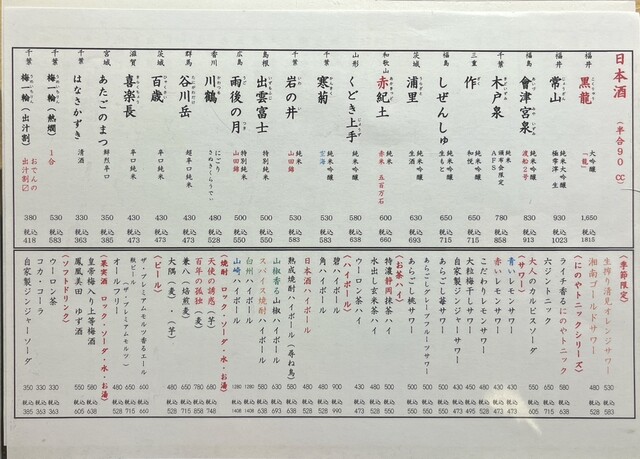 日本酒(半合90㏄)
福井 黒龍 大吟醸 「龍」 1,650 税込1815
福井 常山 純米大吟醸 超辛 930 税込1023
福島 會津宮泉 純米吟醸 渡船2号 830 税込913
千葉 木戸泉 純米 頒布会限定 AFS 780 税込858
三重 作 純米吟醸 650 税込715
福島 しぜんしゅ 純米吟醸 生もと 650 税込715
茨城 浦里 純米吟醸 630 税込693
和歌山 赤紀土 純米 赤米 五百万石 600 税込660
山形 くどき上手 純米吟醸 580 税込638
千葉 寒菊 純米吟醸 530 税込583
千葉 岩の井 純米 山田錦 530 税込583
島根 出雲富士 特別純米 500 税込550
広島 雨後の月 特別純米 山田錦 500 税込550
香川 川鶴 にごり さぬきくらうでぃ 480 税込528
群馬 谷川岳 超辛口純米 430 税込473
茨城 百歳 辛口純米 430 税込473
滋賀 喜楽長 辛口純米 430 税込473
宮城 あたごのまつ 鮮烈辛口 350 税込385
千葉 はなさかずき 清酒 330 税込363
千葉 梅一輪(熱燗) 1合 530 税込583
千葉 梅一輪(出汁割) おでんの出汁割 380 税込418
(季節限定)
生搾り清見オレンジサワー 530 税込583
湘南ゴールドサワー 480 税込528
(にのやトニックシリーズ)
ライチ香るにのやトニック 580 税込638
六ジントニック 650 税込715
大人のカルピスソーダ 550 税込605
(サワー)
青いレモンサワー 480 税込528
赤いレモンサワー 480 税込528
こだわりレモンサワー 450 税込495
大粒梅干しサワー 430 税込473
自家製ジンジャーサワー 480 税込528
あらごし苺サワー 480 税込528
あらごしグレープフルーツサワー 480 税込528
あらごし桃サワー 480 税込528
(お茶ハイ)
特濃静岡抹茶ハイ 480 税込528
水出し玄米茶ハイ 430 税込473
ウーロン茶ハイ 430 税込473
(ハイボール)
碧ハイボール 900 税込990
角ハイボール 480 税込528
日本酒ハイボール 480 税込528
熟成焼酎ハイボール(尋ね鳥) 580 税込638
山椒香る山椒ハイボール 630 税込693
スパイス焼酎ハイボール 580 税込638
白州ハイボール 1280 税込1408
山崎ハイボール 1280 税込1408
(焼酎 ロック・ソーダ・水・お湯)
天使の誘惑(芋) 680 税込748
百年の孤独(麦) 780 税込858
兼八(焙煎麦) 650 税込715
大隅(麦)・(芋) 480 税込528
(ビール)
ザ・プレミアムモルツ香るエール 600 税込660
瓶ビール(ザ・プレミアムモルツ) 650 税込715
オールフリー 480 税込528
(果実酒 ロック・ソーダ・水・お湯)
皇帝梅入り上等梅酒 580 税込638
鳳凰美田 ゆず酒 550 税込605
(ソフトドリンク)
ウーロン茶 330 税込363
コカ・コーラ 330 税込363
自家製ジンジャーソーダ 350 税込385